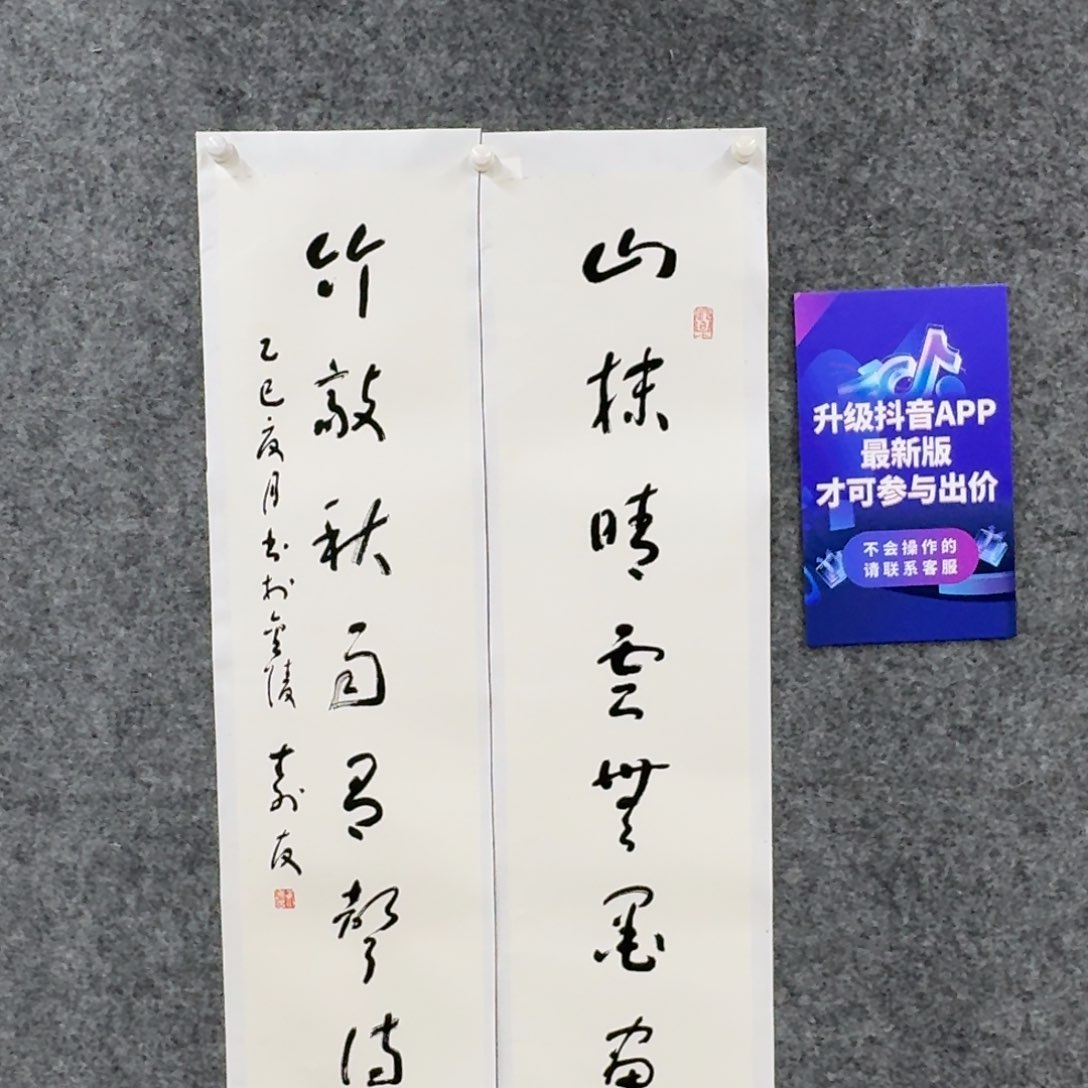 山抹晴雲無墨畫
竹敲秋雨有聲詩
乙巳夏月書於金陵 嘉友
升级抖音APP
最新版
才可参与出价
不会操作的
请联系客服